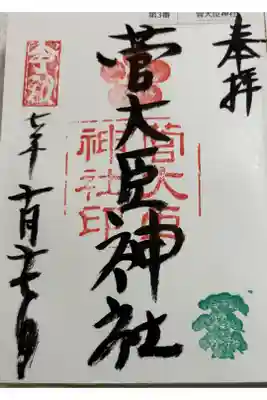 第3番 菅大臣神社
奉拝
菅大臣神社
菅大臣
神社印
七年十一月十七日